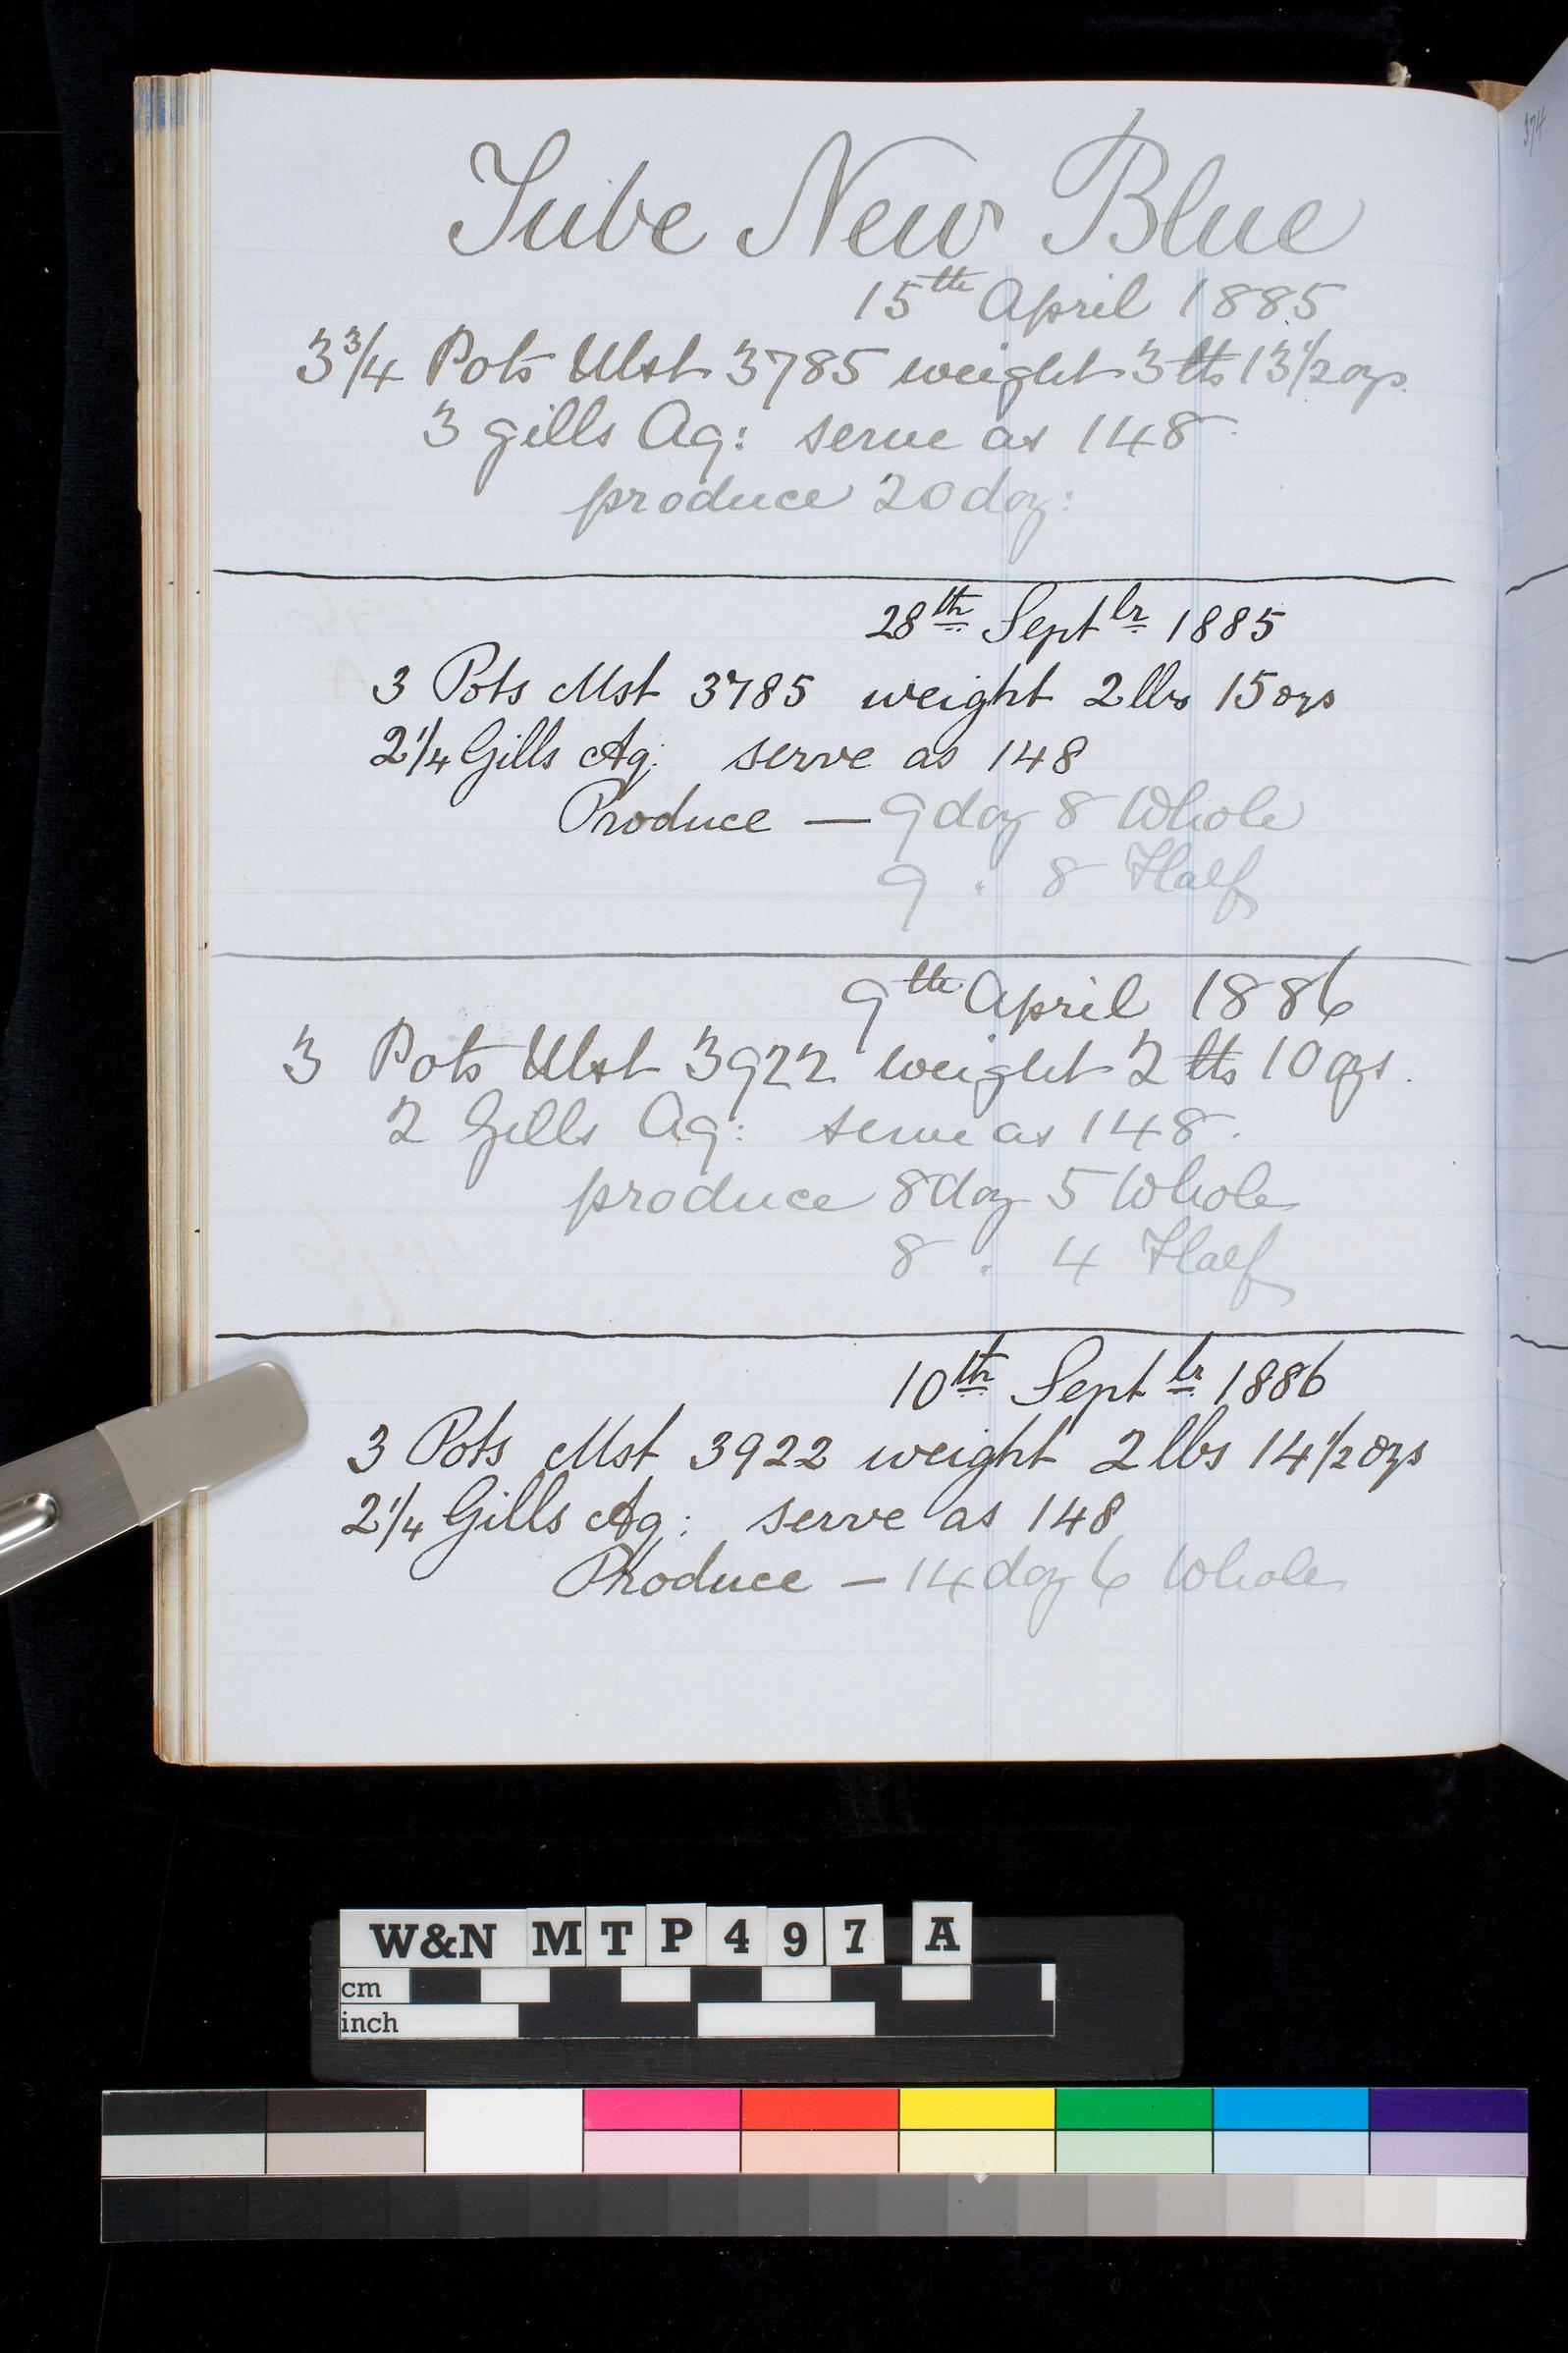 Tube New Blue
15th April 1885
3 3/4 Pots Mst 3785 weight 3 lbs 13 1/2 ozs.
3 gills Aq: serve as 148.
produce 20 doz:
28th Septbr 1885
3 Pots Mst 3785 weight 2 lbs 15 ozs
2 1/4 Gills Aq: serve as 148
Produce — 9 doz 8 Whole
9 " 8 Half
9th April 1886
3 Pots Mst 3922 weight 2 lbs 10 ozs.
2 Gills Aq: serve as 148.
produce 8 doz 5 Whole
8 " 4 Half
10th Septbr 1886
3 Pots Mst 3922 weight 2 lbs 14 1/2 ozs
2 1/4 Gills Aq: serve as 148
Produce — 14 doz 6 Whole
374
W&N MTP497 A
cm
inch